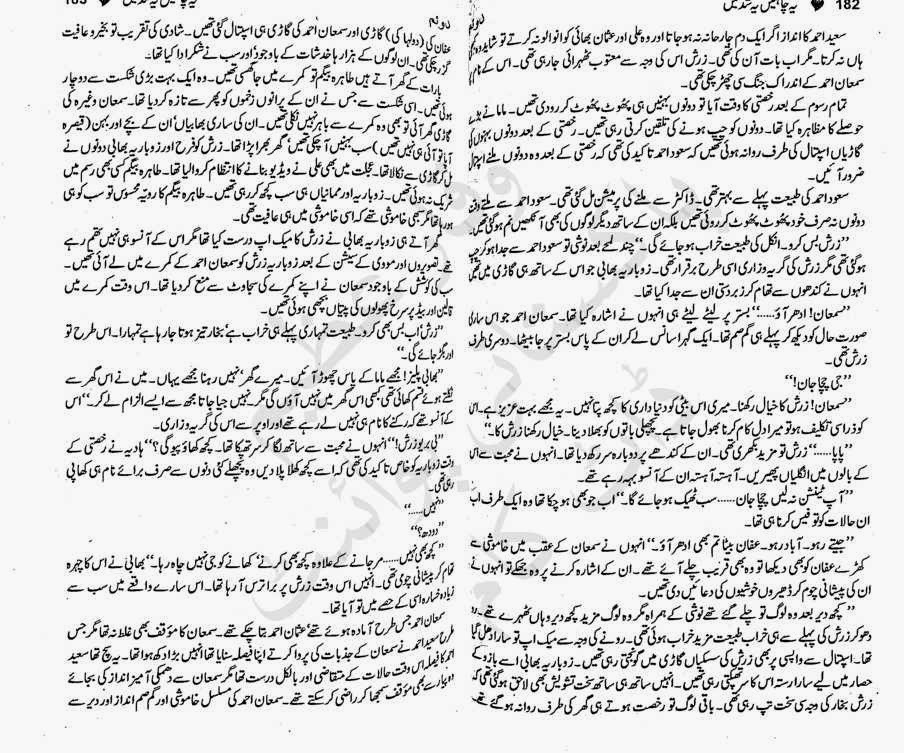 182 یہ چاہتیں یہ شدتیں
سعید احمد کا انداز اگر ایک دم جارحانہ نہ ہو جاتا اور وہ علی اور عثمان بھائی کو انوالو نہ کرتے تو شاید وہ
ہاں نہ کرتا۔ مگر اب بات آن کی تھی۔ زرش اس کی وجہ سے معتوب ٹھہرائی جا رہی تھی۔ اس کے
سمعان احمد کے اندر اک جنگ سی چھڑ چکی تھی۔
تمام رسوم کے بعد رخصتی کا وقت آیا تو دونوں بہنیں ہی پھوٹ پھوٹ کر رو دی تھیں۔ ماما نے بڑے
حوصلے کا مظاہرہ کیا تھا۔ دونوں کو چپ ہونے کی تلقین کرتی رہی تھیں۔ رخصتی کے بعد دونوں بہنوں کی
گاڑیاں اسپتال کی طرف روانہ ہوئی تھیں کہ سعود احمد تاکید کی تھی کہ رخصتی کے بعد وہ دونوں ملنے اسپتال
ضرور آئیں۔
سعود احمد کی طبیعت پہلے سے بہتر تھی۔ ڈاکٹر سے ملنے کی پرمیشن مل گئی تھی۔ سعود احمد سے ملتے وقت
دونوں نہ صرف خود پھوٹ پھوٹ کر روئی تھیں بلکہ ان کے ساتھ دیگر لوگوں کی بھی آنکھیں نم ہو گئی تھیں۔
”زرش بس کرو۔ انکل کی طبیعت خراب ہو جائے گی۔“ چند لمحے بعد نوشی تو سعود احمد سے جدا ہو کر چپ
ہو گئی تھی مگر زرش کی گریہ وزاری اسی طرح برقرار تھی۔ زوباریہ بھابی جو اس کے ساتھ ہی گاڑی میں تھیں
انہوں نے کندھوں سے تھام کر زبردستی ان سے جدا کیا تھا۔
”سمعان! ادھر آؤ.....“ بستر پر لیٹے لیٹے ہی انہوں نے اشارہ کیا تھا۔ سمعان احمد جو اس ساری
صورت حال کو دیکھ کر پہلے ہی گم صم تھا۔ ایک گہرا سانس لے کر ان کے پاس بستر پر جا بیٹھا۔ دوسری طرف
زرش تھی۔
”جی چچا جان!“
”سمعان! زرش کا خیال رکھنا۔ میری اس بیٹی کو دنیا داری کا کچھ پتا نہیں۔ یہ مجھے بہت عزیز ہے۔ اس
کو ذرا سی تکلیف ہو تو میرا دل کام کرنا بھول جاتا ہے۔ پچھلی باتوں کو بھلا دینا۔ خیال رکھنا زرش کا۔“
”پاپا......“ زرش تو مزید بکھری تھی۔ ان کے کندھے پر دوبارہ سر رکھ دیا تھا۔ انہوں نے محبت سے اس
کے بالوں میں انگلیاں پھیریں۔ آہستہ آہستہ ان کے آنسو بہہ رہے تھے۔
”آپ ٹینشن نہ لیں چچا جان...... سب ٹھیک ہو جائے گا۔“ اب جو بھی ہو چکا تھا وہ ایک طرف اب
ان حالات کو تو فیس کرنا ہی تھا۔
”جیتے رہو۔ آباد رہو۔ عفان بیٹا تم بھی ادھر آؤ۔“ انہوں نے سمعان کے عقب میں خاموشی سے
کھڑے عفان کو بھی دیکھا تو وہ بھی قریب چلے آئے تھے۔ ان کے اشارہ کرنے پر وہ جھکے تو انہوں نے
ان کی پیشانی چوم کر ڈھیروں خوشیوں کی دعائیں دی تھیں۔
کچھ دیر بعد وہ لوگ تو چلے گئے تھے نوشی کے ہمراہ مگر وہ لوگ مزید کچھ دیر وہاں ٹھہرے تھے۔ رو
دھو کر زرش کی پہلے سے ہی خراب طبیعت مزید خراب ہوئی تھی۔ رونے کی وجہ سے میک اپ تو سارا دھل گیا
تھا۔ اسپتال سے واپسی پر بھی زرش کی سسکیاں گاڑی میں گونجتی رہی تھیں۔ زوباریہ بھابی اسے بازو کے
حصار میں لیے سارا رستہ اس کا سر تھپکتی رہی تھیں۔ انہیں ساتھ ہی ساتھ سخت تشویش بھی لاحق ہو گئی تھی کہ
زرش بخار کی وجہ سے سخت تپ رہی تھی۔ باقی لوگ تو رخصت ہوتے ہی گھر کی طرف روانہ ہو گئے تھے
183 یہ چاہتیں یہ شدتیں
عفان کی (دولہا کی) گاڑی اور سمعان احمد کی گاڑی ہی اسپتال گئی تھیں۔ شادی کی تقریب تو بخیر و عافیت
گزر چکی تھی۔ ان لوگوں کے ہزار ہا خدشات کے باوجود اور سب نے شکر ادا کیا تھا۔
بارات کے گھر آتے ہیں طاہرہ بیگم تو کمرے میں جا گھسی تھیں۔ وہ ایک بہت بڑی شکست سے دوچار
ہوئی تھیں۔ اسی شکست سے جس نے ان کے پرانے زخموں کو پھر سے تازہ کر دیا تھا۔ سمعان وغیرہ کی
گاڑی گھر آئی تو بھی وہ کمرے سے باہر نہیں نکلی تھیں۔ ان کی ساری بھابیاں، ان کے بچے اور بہن (قیصرہ
آپا تو آئی ہی نہیں تھیں) سب بہنیں آ چکی تھیں، گھر بھرا پڑا تھا۔ زرش کو فرح اور زوباریہ بھابی دونوں نے
مل کر گاڑی سے نکالا تھا۔ عجلت میں بھی علی نے ویڈیو بنانے کا انتظام کروا لیا تھا۔ طاہرہ بیگم کسی بھی رسم میں
شریک نہ ہوئی تھیں۔ زوباریہ اور ممانیاں ہی سب کچھ کر رہی تھیں۔ طاہرہ بیگم کا رویہ محسوس تو سب کو ہی
ہو رہا تھا مگر سبھی خاموش تھے کہ اسی خاموشی میں ہی عافیت تھی۔
گھر آتے ہی زوباریہ بھابی نے زرش کا میک اپ درست کیا تھا مگر اس کے آنسو ہی نہیں تھم رہے
تھے۔ تصویروں اور مووی کے سیشن کے بعد زوباریہ زرش کو سمعان احمد کے کمرے میں لے آئی تھیں۔
سب کی کوشش کے باوجود سمعان نے اپنے کمرے کی سجاوٹ سے منع کر دیا تھا۔ اس وقت کمرے میں
قالین اور بیڈ پر سرخ پھولوں کی پتیاں بچھی ہوئی تھیں۔
”زرش اب بس بھی کرو۔ طبیعت تمہاری پہلے ہی خراب ہے، بخار تیز ہوتا جا رہا ہے تمہارا۔ اس طرح تو
اور بگڑ جائے گی۔“
”بھابی پلیز! مجھے ماما کے پاس چھوڑ آئیں۔ میرے گھر، نہیں رہنا مجھے یہاں۔ میں نے اس گھر سے
نکلتے ہوئے قسم کھائی تھی کبھی اس گھر میں نہیں آؤں گی مگر نہیں جیا جاتا مجھ سے ایسے الزام لے کر۔“ اس
کے آنسو تھے کہ رکنے کا نام ہی نہیں لے رہے تھے اور اوپر سے اس کی گریہ وزاری۔
”بی بریو زرش!“ انہوں نے محبت سے ساتھ لگا کر سر تھپکا تھا۔ ”کچھ کھاؤ پیو گی؟“ ہادیہ نے رخصتی کے
وقت زوباریہ کو خاص تاکید کی تھی کہ اسے کچھ کھلا پلا دیں وہ پچھلے کئی دنوں سے صرف برائے نام ہی کھا پی
رہی تھی۔
”نہیں.....“
”دودھ؟“
”کچھ بھی نہیں..... مر جانے کے علاوہ کچھ بھی کرنے، کھانے کو جی نہیں چاہ رہا۔“ بھابی نے اس کا چہرہ
تھام کر پیشانی چومی تھی۔ انہیں اس وقت زرش پر بڑا ترس آ رہا تھا۔ اس سارے واقعے میں سب سے
زیادہ خسارہ اسی کے حصے میں تو آیا تھا۔
سمعان احمد جس طرح آمادہ ہوئے تھے، عثمان احمد بتا چکے تھے۔ سمعان کا مؤقف بھی غلط نہ تھا مگر جس
طرح سعید احمد نے سمعان کے جذبات کی پروا کرتے اپنا فیصلہ سنایا تھا انہیں بڑا دکھ ہوا تھا۔ یہ سچ تھا سعید
احمد کا فیصلہ اس وقت حالات کے متقاضی اور بالکل درست تھا مگر سمعان سے دھمکی آمیز انداز کی بجائے
پیار سے بھی مؤقف سمجھا کر راضی کر سکتے تھے۔ سمعان احمد کی مسلسل خاموشی اور گم صم انداز اور دیر سے